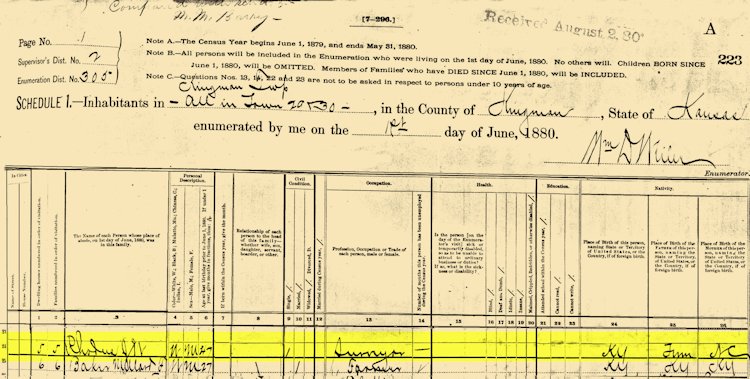 M. M.
[7-296.]
Received August 2, 80
A
Page No. 1
Supervisor's Dist. No. 2
Enumeration Dist. No. 305
223
Note A.—The Census Year begins June 1, 1879, and ends May 31, 1880.
Note B.—All persons will be included in the Enumeration who were living on the 1st day of June, 1880. No others will. Children BORN SINCE
June 1, 1880, will be OMITTED. Members of Families who have DIED SINCE June 1, 1880, will be INCLUDED.
Note C.—Questions Nos. 13, 14, 22 and 23 are not to be asked in respect to persons under 10 years of age.
Kingman Twp
SCHEDULE 1.—Inhabitants in All in Town, in the County of Kingman, State of Kansas
enumerated by me on the 1st day of June, 1880.
Wm D
Enumerator.
In Cities.
Personal Description.
Civil Condition.
Occupation.
Health.
Education.
Nativity.
Name of Street.
House Number.
Dwelling houses numbered in order of visitation.
Families numbered in order of visitation.
The Name of each Person whose place of abode, on 1st day of June, 1880, was in this family.
If born within the Census year, give the month.
Relationship of each person to the head of this family—whether wife, son, daughter, servant, boarder, or other.
Single,
Married,
Widowed, Divorced, D.
Married during Census year.
Profession, Occupation or Trade of each person, male or female.
Number of months this person has been unemployed during the Census year.
Is the person [on the day of the Enumerator's visit] sick or temporarily disabled, so as to be unable to attend to ordinary business or duties? If so, what is the sickness or disability?
Blind,
Deaf and Dumb,
Idiotic,
Insane,
Maimed, Crippled, Bedridden, or otherwise disabled,
Attended school within the Census year,
Cannot read,
Cannot write,
Place of Birth of this person, naming State or Territory of United States, or the Country, if of foreign birth.
Place of Birth of the Father of this person, naming the State or Territory of United States, or the Country, if of foreign birth.
Place of Birth of the Mother of this person, naming the State or Territory of United States, or the Country, if of foreign birth.
1 2 3 4 5 6 7 8 9 10 11 12 13 14 15 16 17 18 19 20 21 22 23 24 25 26
5 5 J W W M 27 Surveyor Ky Tenn NC
6 6 Baker W M 27 Farmer Ky Ky Ky